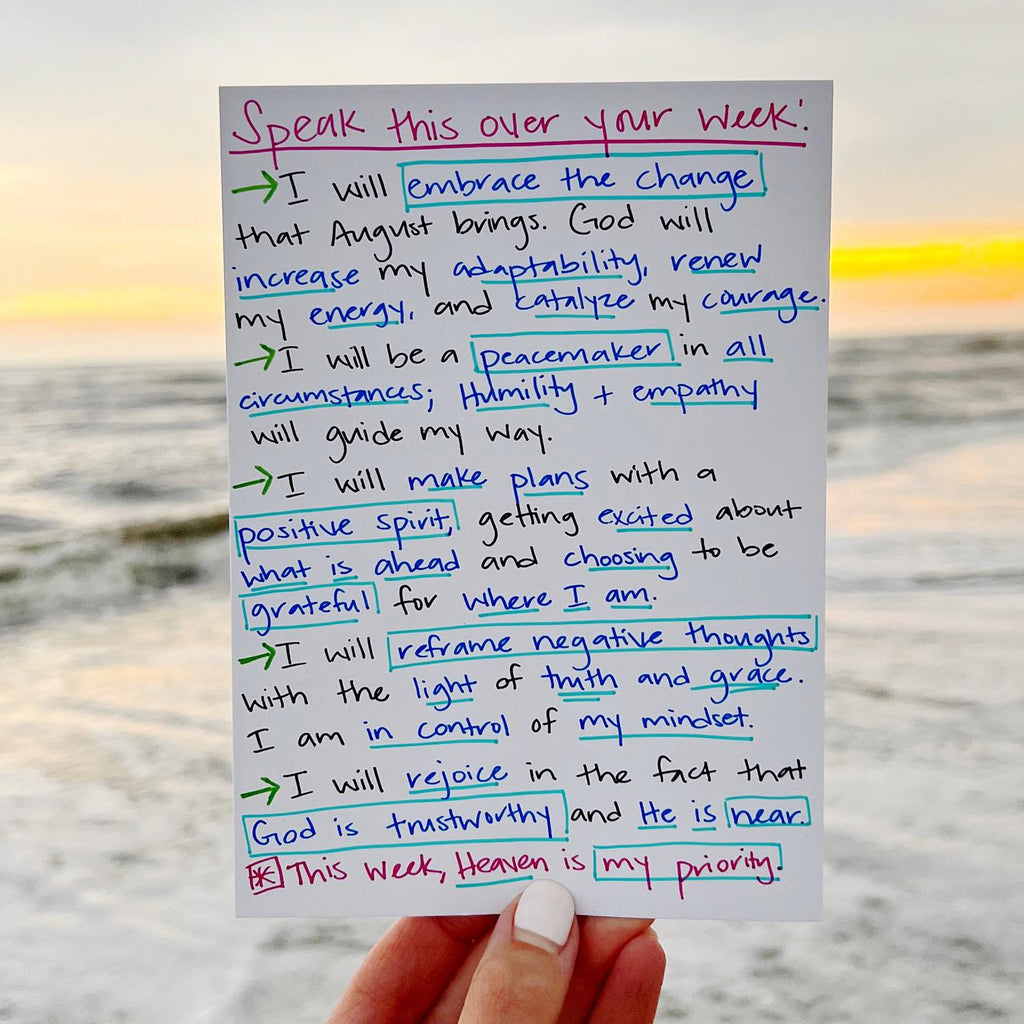 Speak this over your week:
→ I will embrace the change
that August brings. God will
increase my adaptability, renew
my energy, and catalyze my courage.
→ I will be a peacemaker in all
circumstances; Humility + empathy
will guide my way.
→ I will make plans with a
positive spirit, getting excited about
what is ahead and choosing to be
grateful for where I am.
→ I will reframe negative thoughts
with the light of truth and grace.
I am in control of my mindset.
→ I will rejoice in the fact that
God is trustworthy and He is near.
* This week, Heaven is my priority.